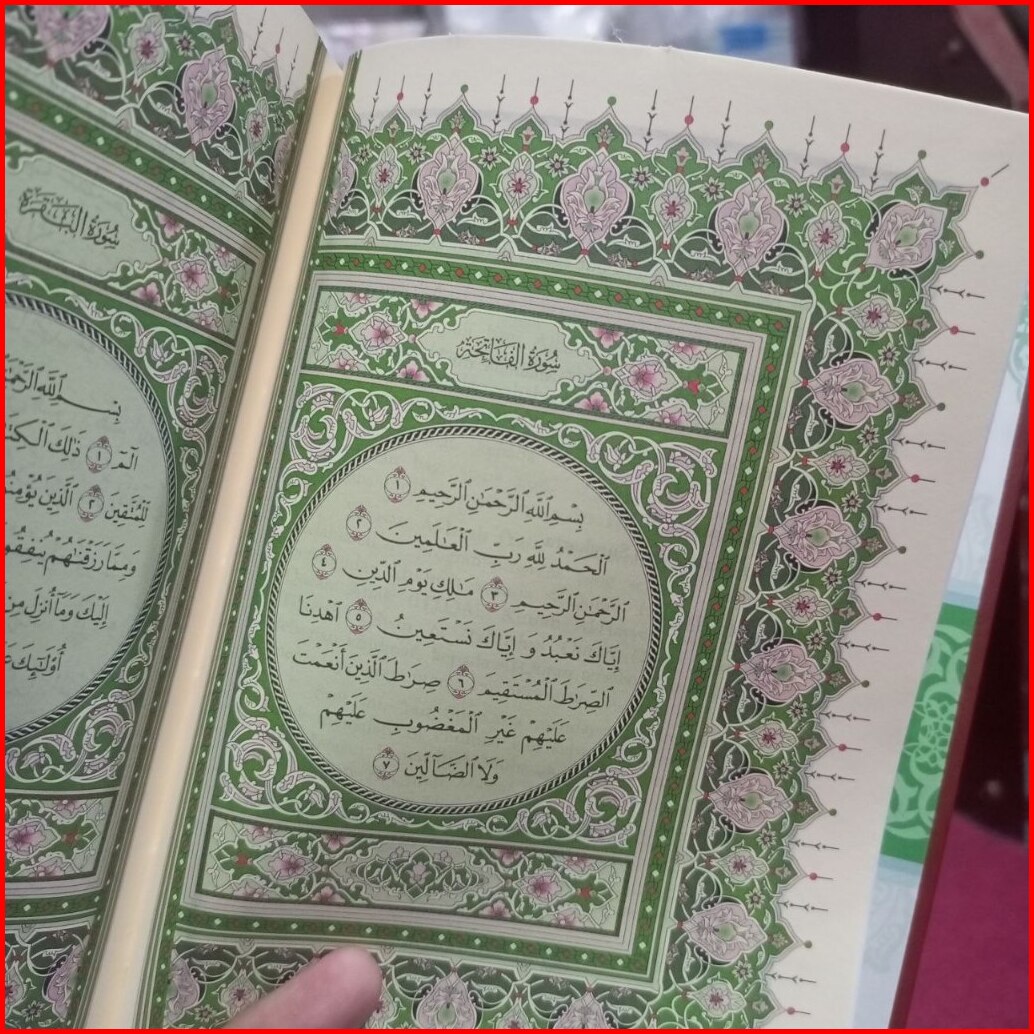 سُورَةُ الفَاتِحَةِ
بِسْمِ ٱللَّهِ ٱلرَّحْمَٰنِ ٱلرَّحِيمِ ١
ٱلْحَمْدُ لِلَّهِ رَبِّ ٱلْعَٰلَمِينَ ٢
ٱلرَّحْمَٰنِ ٱلرَّحِيمِ ٣ مَٰلِكِ يَوْمِ ٱلدِّينِ ٤
إِيَّاكَ نَعْبُدُ وَإِيَّاكَ نَسْتَعِينُ ٥ ٱهْدِنَا
ٱلصِّرَٰطَ ٱلْمُسْتَقِيمَ ٦ صِرَٰطَ ٱلَّذِينَ أَنْعَمْتَ
عَلَيْهِمْ غَيْرِ ٱلْمَغْضُوبِ عَلَيْهِمْ
وَلَا ٱلضَّآلِّينَ ٧
سُورَةُ البَقَرَةِ
بِسْمِ ٱللَّهِ
الٓمٓ ١ ذَٰلِكَ
لِّلْمُتَّقِينَ ٢ ٱلَّذِينَ
وَمِمَّا رَزَقْنَٰهُمْ
إِلَيْكَ وَمَآ أُنزِلَ مِن
أُو۟لَٰٓئِكَ